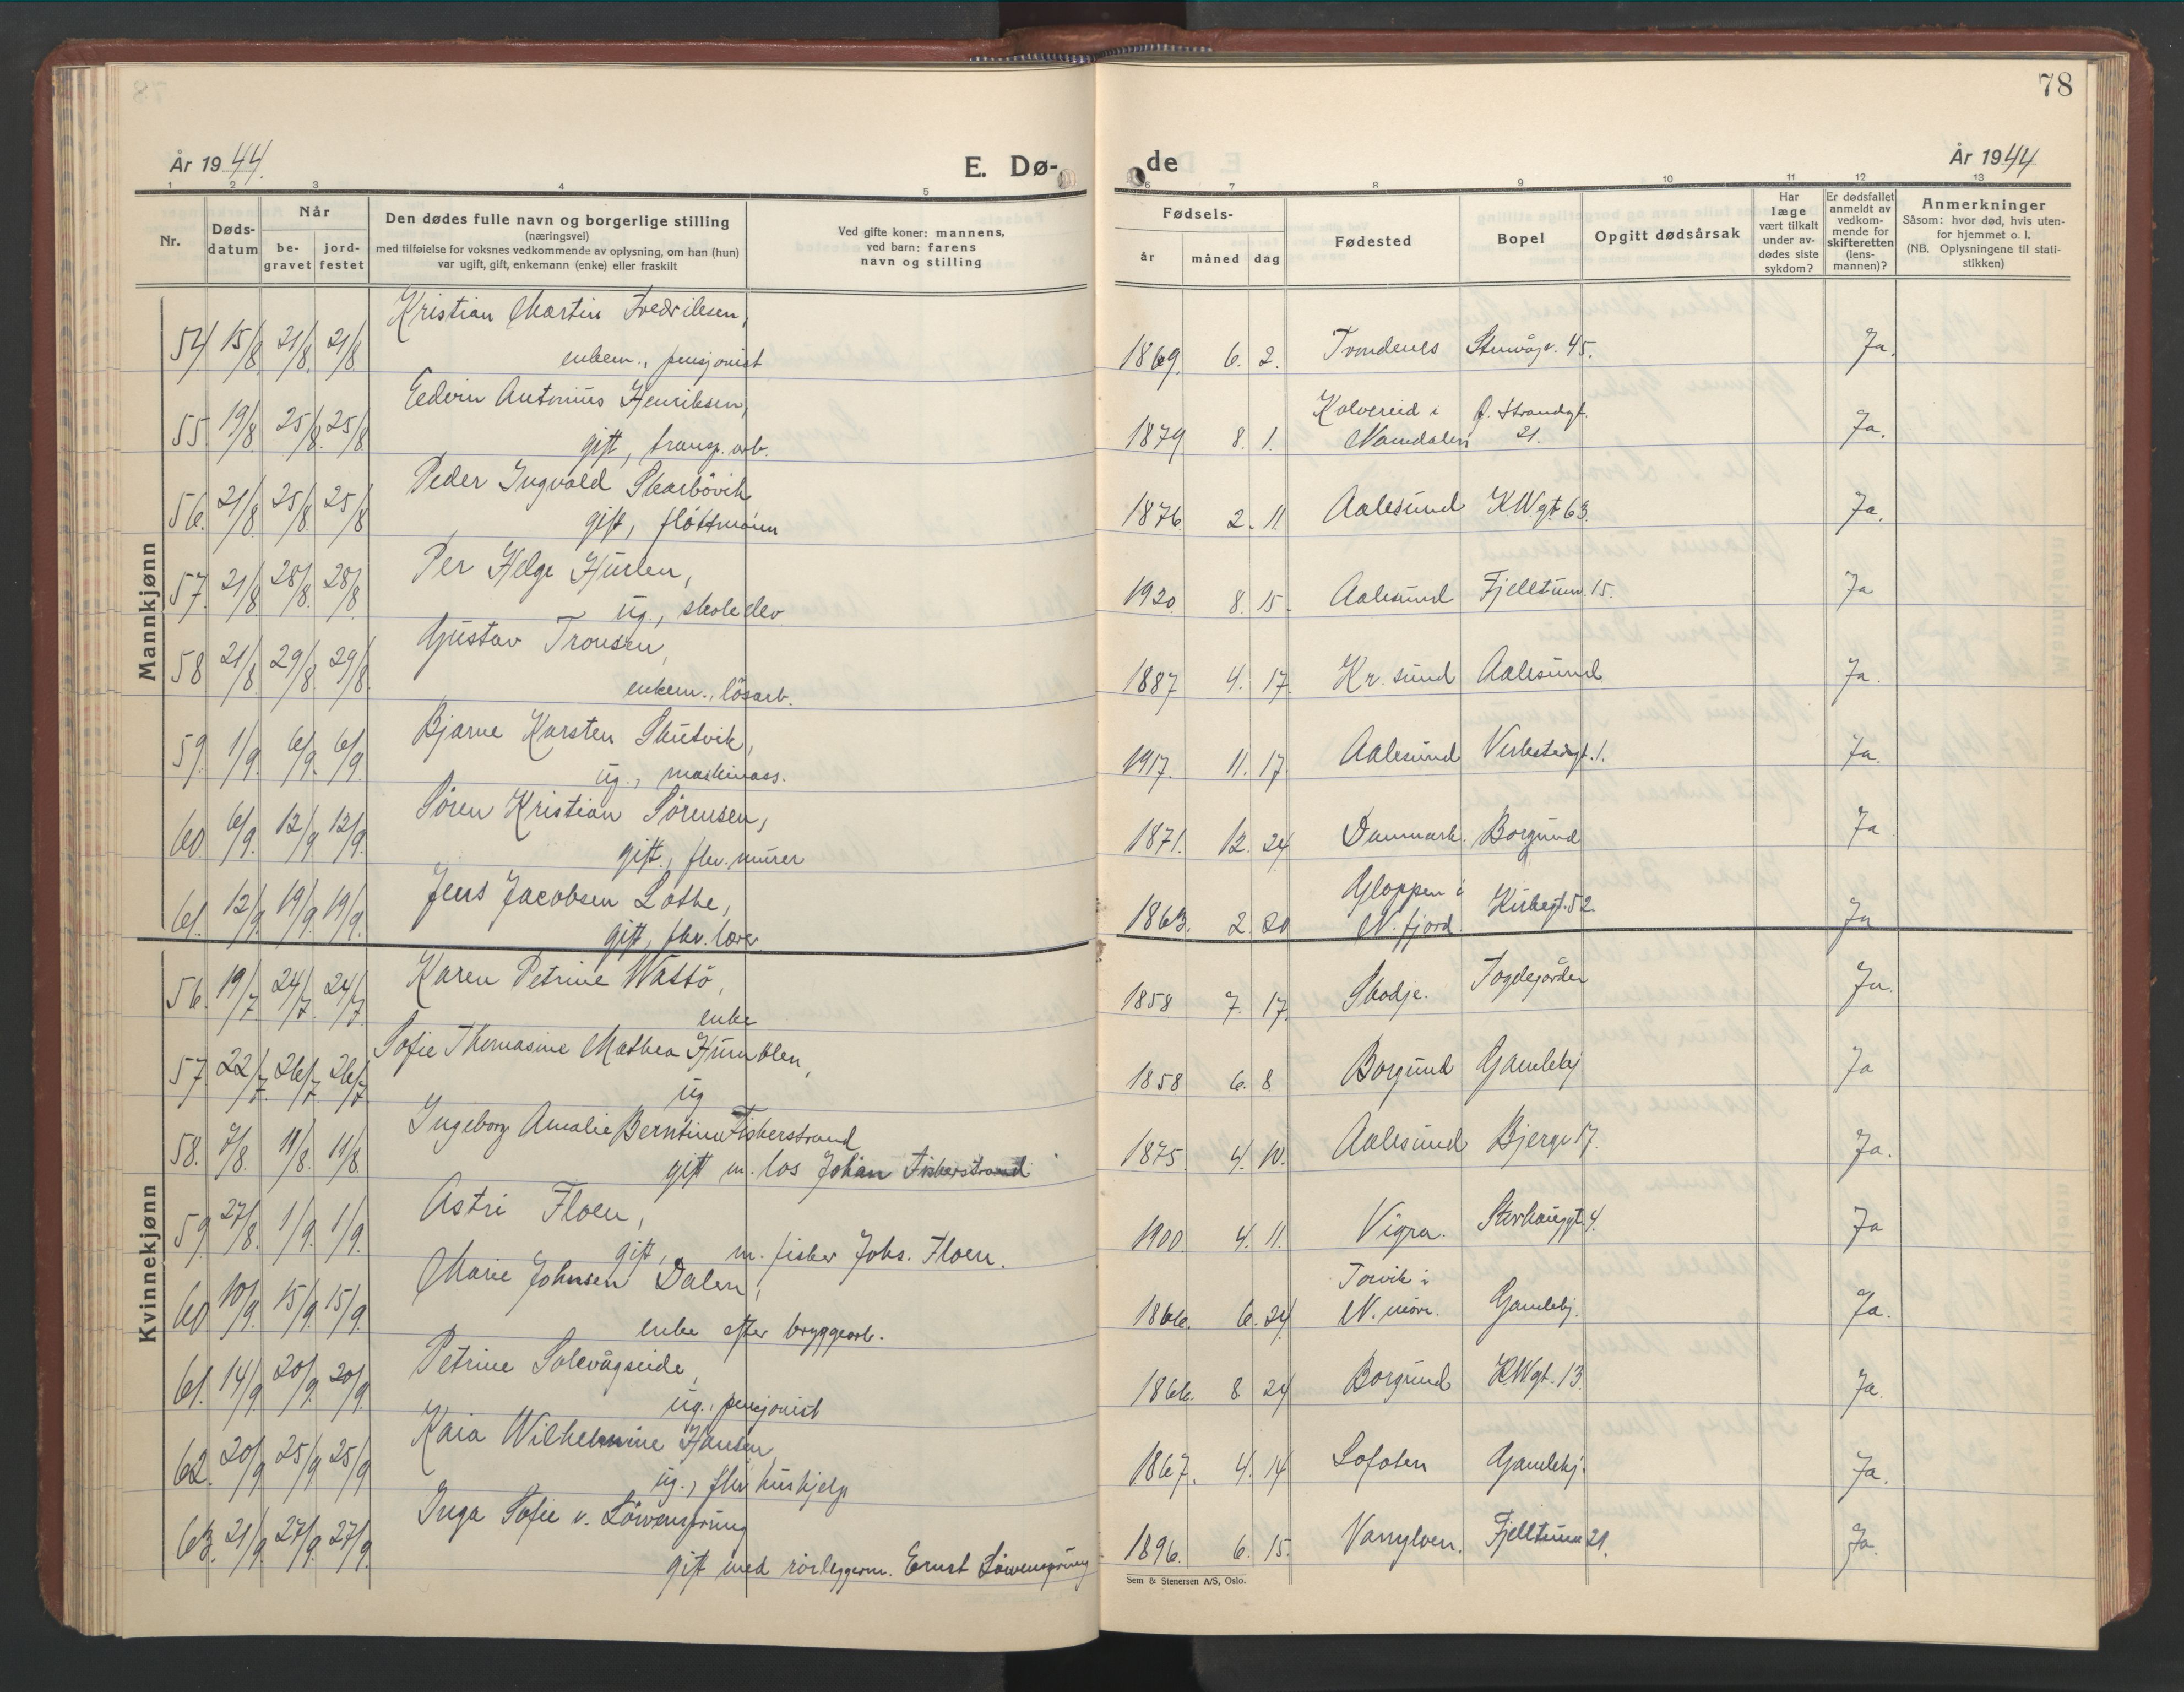 78
År 1944.
E. Dø-
de
År 1944
1 2 3 4 5 6 7 8 9 10 11 12 13
Nr.
Døds-
datum
Når
be-
gravet
jord-
festet
Den dødes fulle navn og borgerlige stilling
(næringsvei)
med tilføielse for voksnes vedkommende av oplysning, om han (hun)
var ugift, gift, enkemann (enke) eller fraskilt
Ved gifte koner: mannens,
ved barn: farens
navn og stilling
Fødsels-
år måned dag
Fødested
Bopel
Opgitt dødsårsak
Har
læge
vært tilkalt
under av-
dødes siste
sykdom?
Er dødsfallet
anmeldt av
vedkom-
mende for
skifteretten
(lens-
mannen)?
Anmerkninger
Såsom: hvor død, hvis uten-
for hjemmet o. l.
(NB. Oplysningene til stati-
stikken)
Mannkjønn
Kristian Martin Fredriksen,
54. 15/8. 21/8. 21/8. enkem., pensjonist 1869. 6. 2. Trondenes 45. Ja.
Edvin Antonius Henriksen,
55. 19/8. 25/8. 25/8. gift, transp. arb. 1879 8. 1. Kolvereid i
Namdalen Strandgt.
21. Ja.
Peder Ingvald Skarbövik
56. 21/8. 25/8. 25/8 gift, fløttmann 1876. 2. 11. Aalesund K.W.gt. 63. Ja.
Per Helge Hurlen,
57. 21/8. 28/8. 28/8. ug., skoleelev 1920. 8. 15. Aalesund Fjelltunv. 15. Ja
Gustav Tronsen,
58 21/8. 29/8. 29/8. enkem., løsarb. 1887 4. 17. Kr. sund Aalesund Ja.
Bjarne Karsten Skutvik,
59. 1/9. 6/9. 6/9. ug., maskinass. 1917. 11. 17. Aalesund Verkstedgt. 1. Ja.
Sören Kristian Sörensen,
60 6/9. 12/9. 12/9. gift., fhv. murer 1871. 12. 24 Danmark. Borgund Ja
Jens Jacobsen Lothe,
61. 12/9. 19/9. 19/9. gift, fhv. lærer 1863. 2. 20 Gloppen i
N. fjord. Kirkegt. 52 Ja
Kvinnekjønn
Karen Petrine Wattö,
56. 19/7 24/7. 24/7. enke 1858 7. 17. Skodje. Fogdegården Ja.
Sofie Thomasine Mathea Humblen,
57. 22/7. 26/7. 26/7 ug 1858 6. 8 Borgund Gamlehj. Ja
Ingeborg Amalie Berntine Fiskerstrand
58. 7/8. 11/8. 11/8 gift m. los Johan Fiskerstrand 1875. 4. 10. Aalesund Bjergv. 17. Ja.
Astri Floen,
59. 27/8. 1/9. 1/9. gift, m. fisker Johs. Floen. 1900. 4. 11. Vigra. Storhauggt. 4. Ja
Marie Johnsen Dalen,
60 10/9. 15/9. 15/9. enke efter bryggearb. 1866. 6. 24 Torvik i
N. möre. Gamlehj. Ja.
Petrine Solevågseide,
61. 14/9. 20/9. 20/9. ug., pensjonist 1866. 8 24 Borgund K.W.gt. 13. Ja.
Kaia Wilhelmine Hansen,
62. 20/9 25/9 25/9 ug., fhv hushjelp 1867. 4. 14 Lofoten Gamlehj. Ja.
Inga Sofie v. Löwensprung
63. 21/9. 27/9. 27/9. gift med rörleggerm. Ernst Löwensprung 1896. 6. 15. Vannylven. Fjelltunv 21. Ja.
Sem & Stenersen A/S, Oslo.